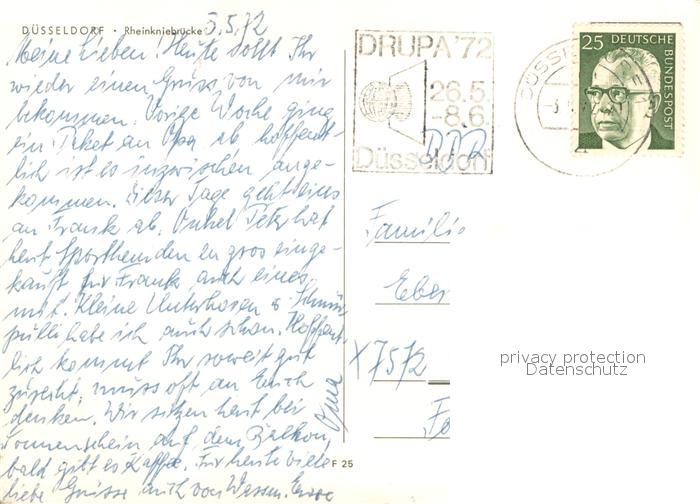 DÜSSELDORF · Rheinkniebrücke
3.5.72
Meine Lieben! Heute sollt Ihr
wieder einen Gruss von mir
bekommen. Vorige Woche ging
ein Paket an Opa ab, hoffent-
lich ist es inzwischen ange-
kommen. Dieser Tage geht eins
an Frank ab. Onkel Peter hat
heut Sporthemden en gros einge-
kauft für Frank auch eines
mit. Kleine Unterhosen u.
pulli habe ich auch schon. Hoffent-
lich kommt Ihr soweit gut
zurecht, muss oft an Euch
denken. Wir sitzen heut bei
Sonnenschein auf dem Balkon,
bald gibt es Kaffee. Für heute viele
liebe Grüsse auch von
Oma
F 25
DRUPA '72
26.5.
-8.6.
Düsseldorf
DDR
DÜSSE
25 DEUTSCHE
BUNDESPOST
Familie
Eber
X 7572
Fo
privacy protection
Datenschutz